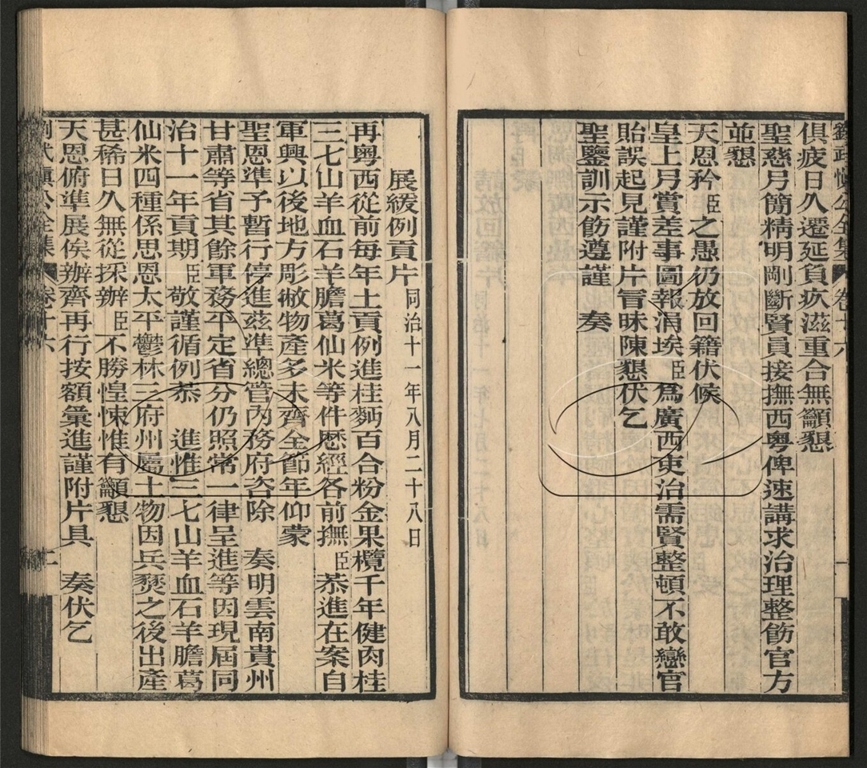 俱疲日久遷延負疚滋重合無籲懇
聖慈另簡精明剛斷賢員接撫西粵俾速講求治理整飭官方
並懇
天恩矜臣之愚仍放回籍伏候
皇上另賞差事圖報涓埃臣爲廣西吏治需賢整頓不敢戀官
貽誤起見謹附片冒昧陳懇伏乞
聖鑒訓示飭遵謹 奏
展緩例貢片同治十一年八月二十八日
再粵西從前每年土貢例進桂麪百合粉金果欖千年健肉桂
三七山羊血石羊膽葛仙米等件歷經各前撫臣恭進在案自
軍興以後地方彫敝物產多未齊全節年仰蒙
聖恩準予暫行停進茲準總管內務府咨除 奏明雲南貴州
甘肅等省其餘軍務平定省分仍照常一律呈進等因現屆同
治十一年貢期臣敬謹循例恭 進惟三七山羊血石羊膽葛
仙米四種係思恩太平鬱林三府州屬土物因兵燹之後出產
甚稀日久無從採辦臣不勝惶悚惟有籲懇
天恩俯準展俟辦齊再行按額彙進謹附片具 奏伏乞
劉武慎公全集 卷十六